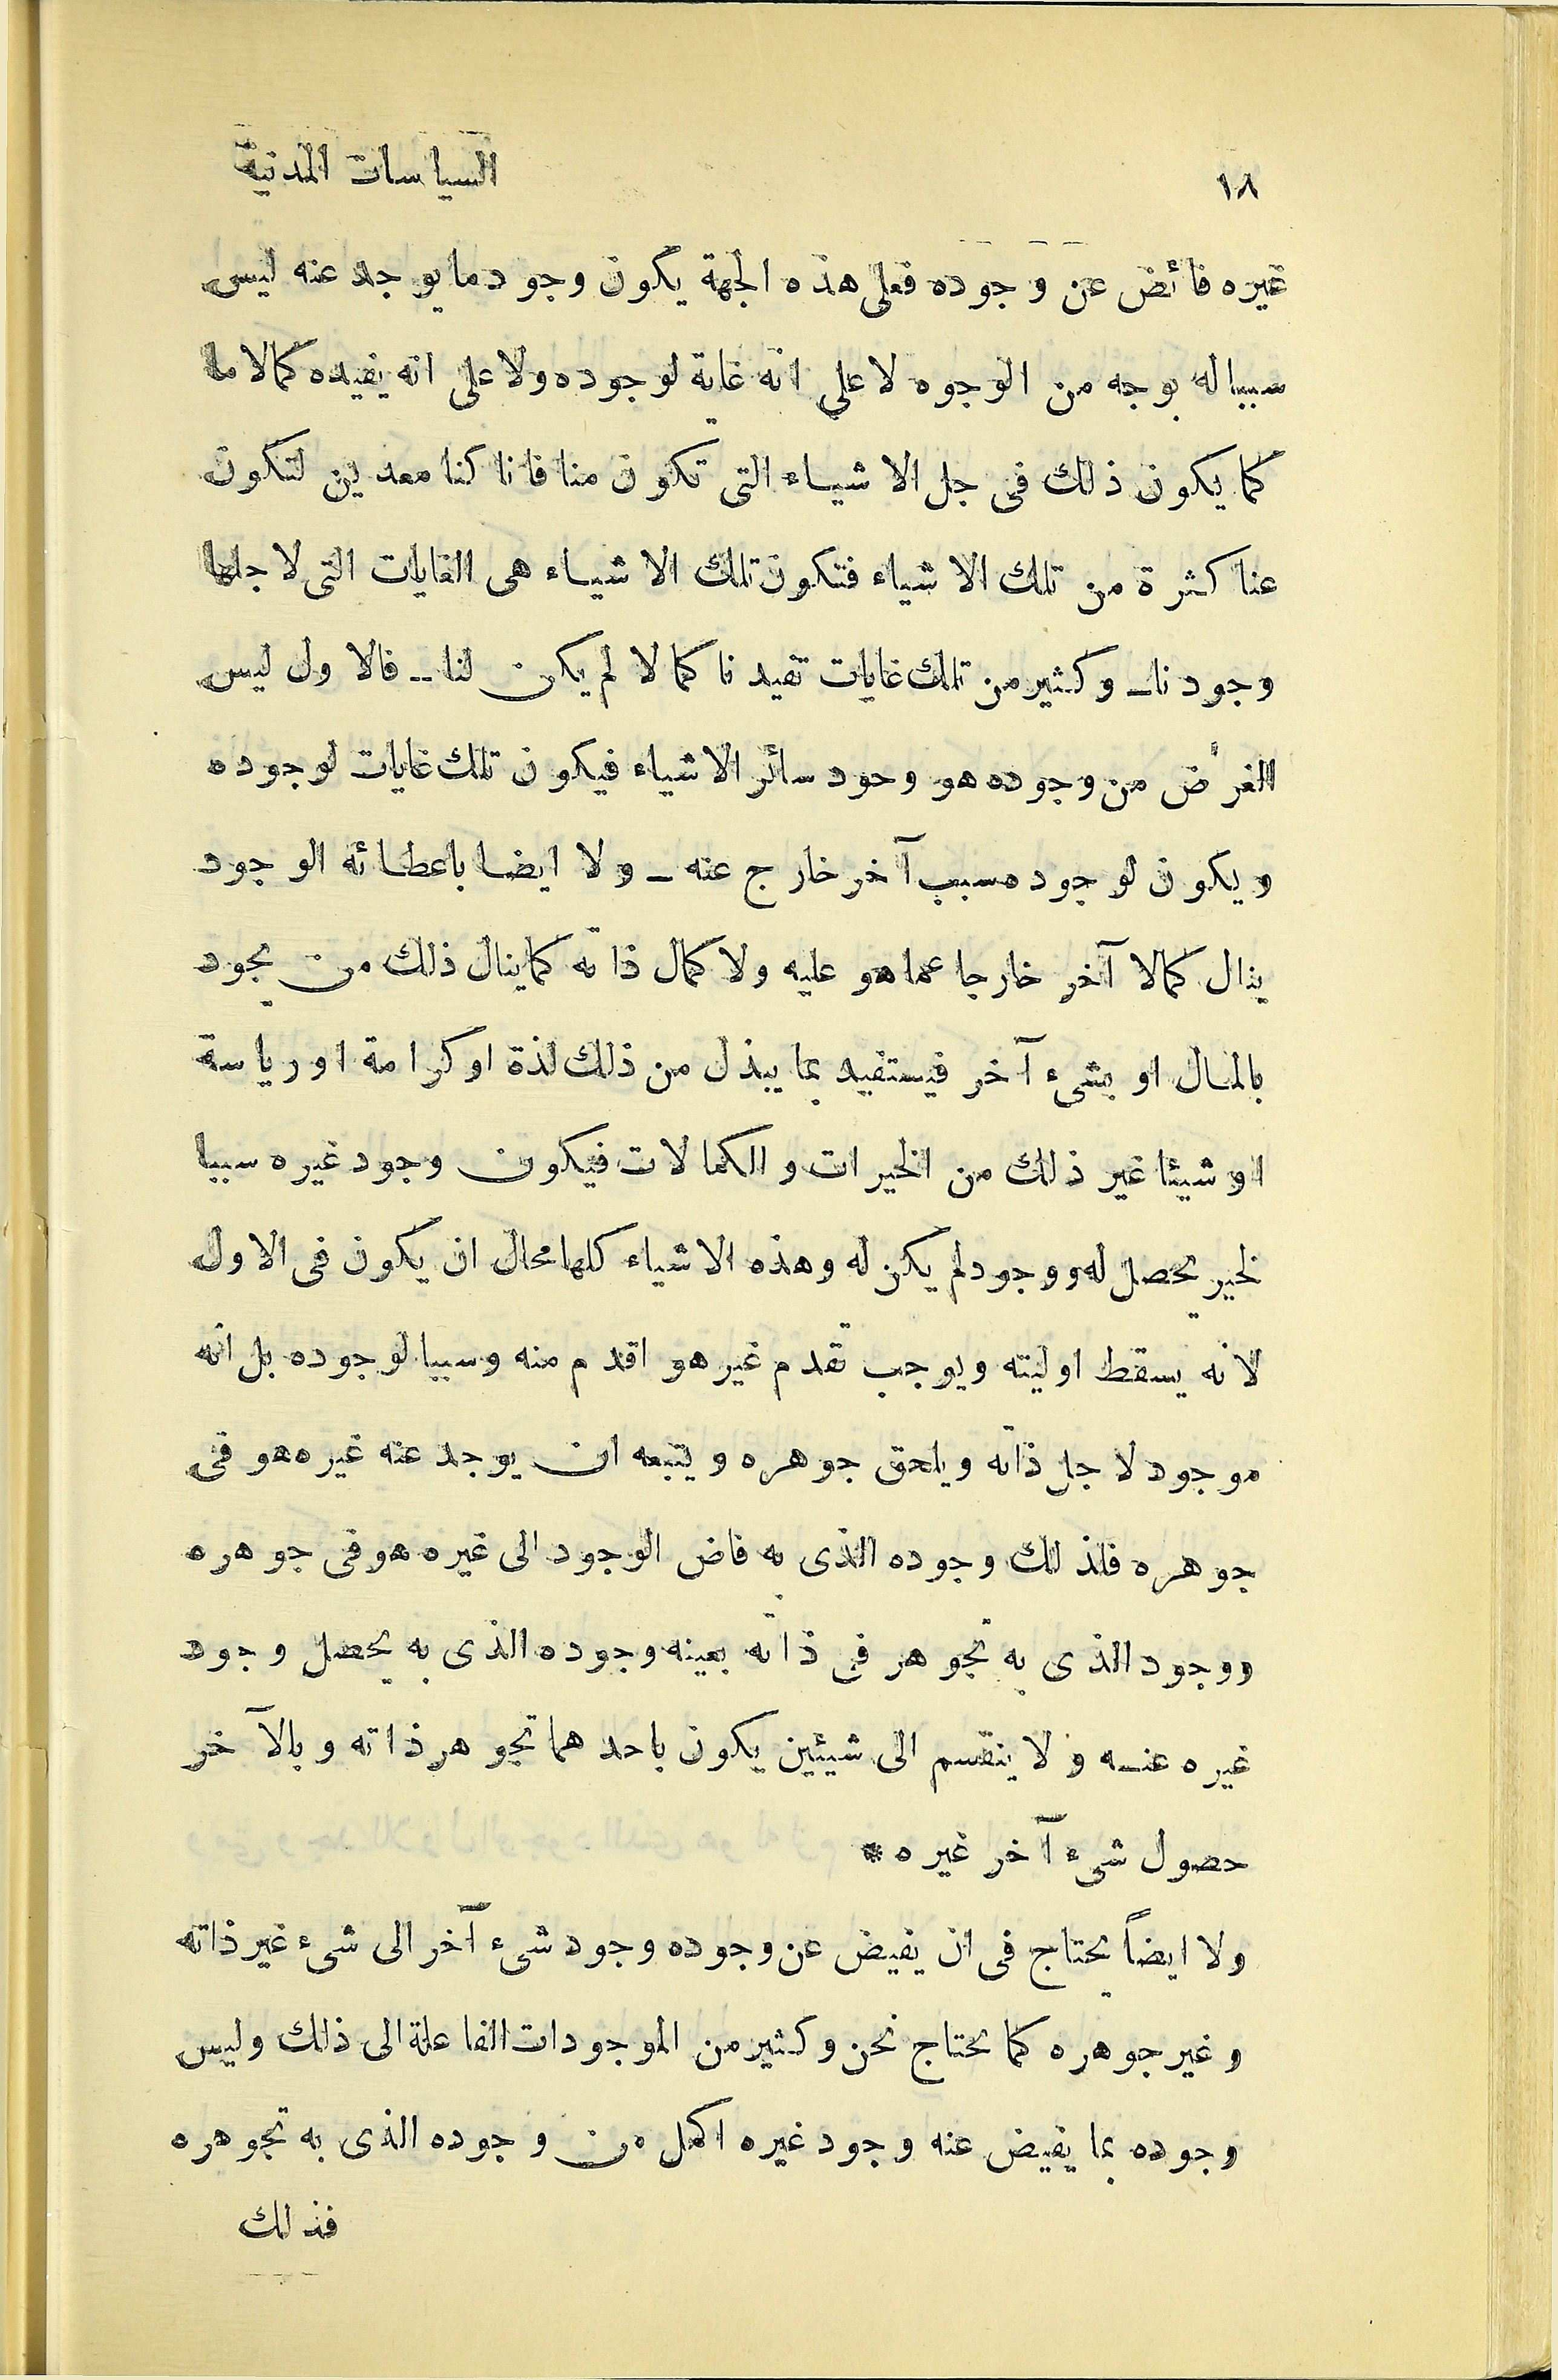 ١٨
السياسات المدنية
غيره فائض عن وجوده فعلى هذه الجهة يكون وجود ما يوجد عنه ليس
سببا له بوجه من الوجوه لا على انه غاية لوجوده ولا على انه يفيده كمالا ما
كما يكون ذلك فى جل الاشياء التى تكون منا فانا كنا معدين لتكون
عنا كثرة من تلك الاشياء فتكون تلك الاشياء هى الغايات التى لاجلها
وجودنا - وكثير من تلك غايات تفيدنا كمالا لم يكن لنا - فالاول ليس
الغرض من وجوده هو وحود سائر الاشياء فيكون تلك غايات لوجوده
ويكون لوجوده سبب آخر خارج عنه - ولا ايضا باعطائه الوجود
ينال كمالا آخر خارجا عما هو عليه ولا كمال ذاته كما ينال ذلك من يجود
بالمال او بشىء آخر فيستفيد بما يبذل من ذلك لذة او كرامة او رياسة
او شيئا غير ذلك من الخيرات والكمالات فيكون وجود غيره سببا
لخير يحصل له ووجود لم يكن له وهذه الاشياء كلها محال ان يكون فى الاول
لانه يسقط اوليته ويوجب تقدم غير هو اقدم منه وسببا لوجوده بل انه
موجود لاجل ذاته ويلحق جوهره ويتبعه ان يوجد عنه غيره هو فى
جوهره فلذلك وجوده الذى به فاض الوجود الى غيره هو فى جوهره
ووجود الذى به تجوهر فى ذاته بعينه وجوده الذى به يحصل وجود
غيره عنه ولا ينقسم الى شيئين يكون باحدهما تجوهر ذاته وبالآخر
حصول شىء آخر غيره *
ولا ايضاً يحتاج فى ان يفيض عن وجوده وجود شىء آخر الى شىء غير ذاته
وغير جوهره كما نحتاج نحن وكثير من الموجودات الفاعلة الى ذلك وليس
وجوده بما يفيض عنه وجود غيره اكمل من وجوده الذى به تجوهره
فذلك